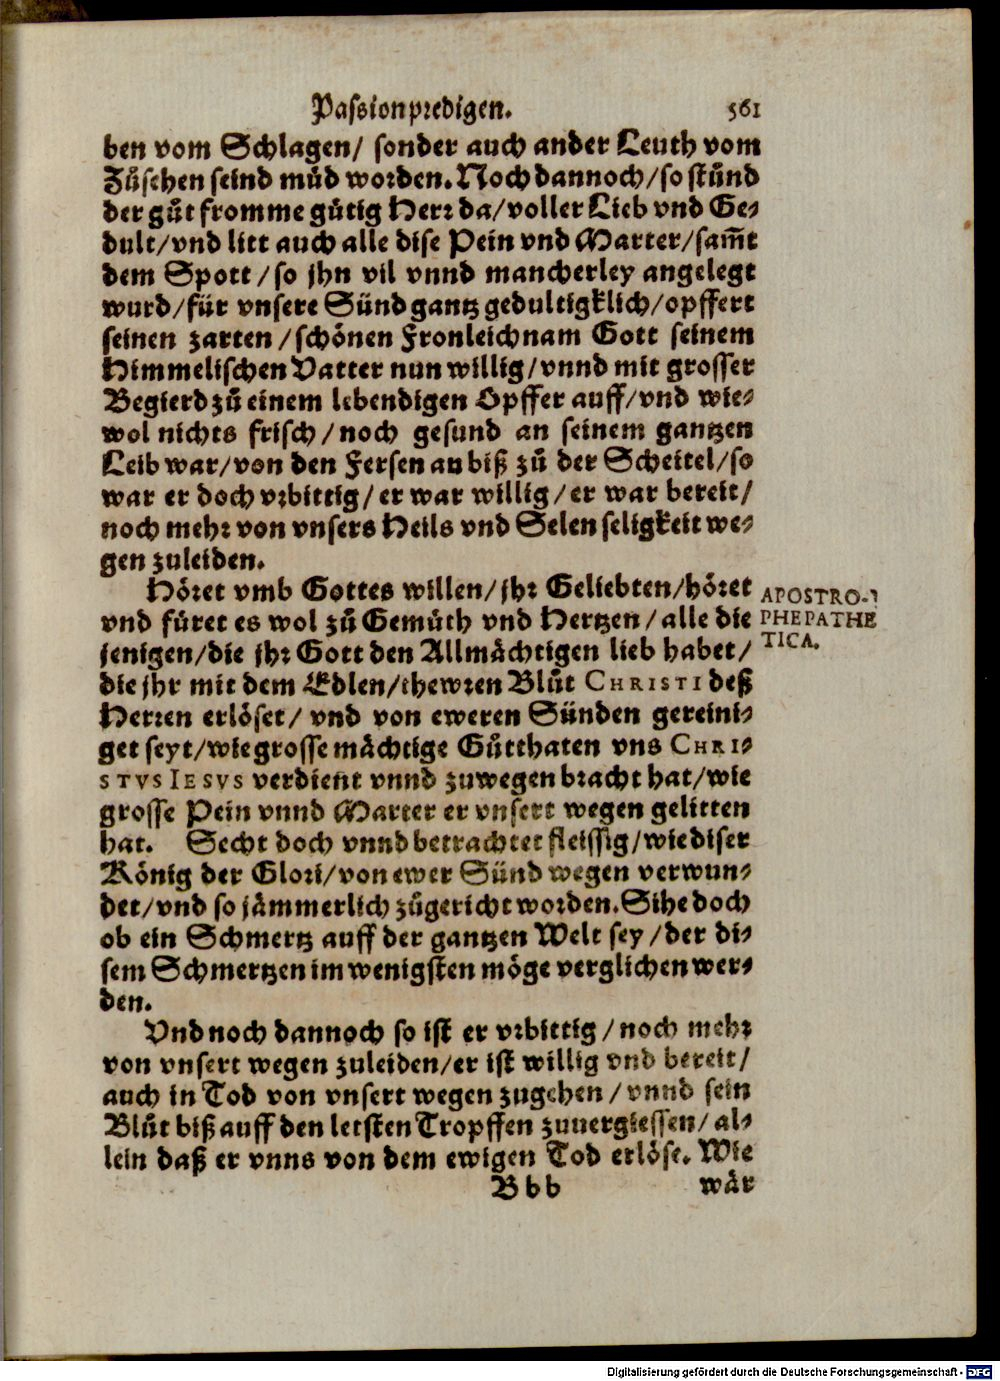 Passionpredigen. 561
ben vom Schlagen/ sonder auch ander Leuth vom
Zůsehen seind můd worden. Noch dannoch/so stůnd
der gůt fromme gütig Herr da/voller Lieb vnd Ge-
dult/vnd litt auch alle dise Pein vnd Marter/sam̃t
dem Spott/so jhn vil vnnd mancherley angelegt
wurd/für vnsere Sünd gantz gedultigklich/opffert
seinen zarten/schönen Fronleichnam Gott seinem
Himmelischen Vatter nun willig/vnnd mit grosser
Begierd zů einem lebendigen Opffer auff/vnd wie-
wol nichts frisch/noch gesund an seinem gantzen
Leib war/von den Fersen an biß zů der Scheitel/so
war er doch vrbittig/er war willig/er war bereit/
noch mehr von vnsers Heils vnd Selen seligkeit we-
gen zuleiden.
Höret vmb Gottes willen/jhr Geliebten/höret
vnd füret es wol zů Gemüth vnd Hertzen/alle die
jenigen/die jhr Gott den Allmächtigen lieb habet/
die jhr mit dem Edlen/thewren Blůt CHRISTI deß
Herren erlöset/ vnd von eweren Sünden gereini-
get seyt/wie grosse mächtige Gůtthaten vns CHRI-
STVS IESVS verdient vnnd zuwegen bracht hat/wie
grosse Pein vnnd Marter er vnsert wegen gelitten
hat. Secht doch vnnd betrachtet fleissig/wie diser
König der Glori/von ewer Sünd wegen verwun-
det/vnd so jämmerlich zůgericht worden. Sihe doch
ob ein Schmertz auff der gantzen Welt sey/der di-
sem Schmertzen im wenigsten möge verglichen wer-
den.
Vnd noch dannoch so ist er vrbittig/noch mehr
von vnsert wegen zuleiden/er ist willig vnd bereit/
auch in Tod von vnsert wegen zugehen/vnnd sein
Blůt biß auff den letsten Tropffen zuuergiessen/ al-
lein daß er vnns von dem ewigen Tod erlöse. Wie
Bbb wär
APOSTRO-
PHE PATHE
TICA.
Digitalisierung gefördert durch die Deutsche Forschungsgemeinschaft - DFG